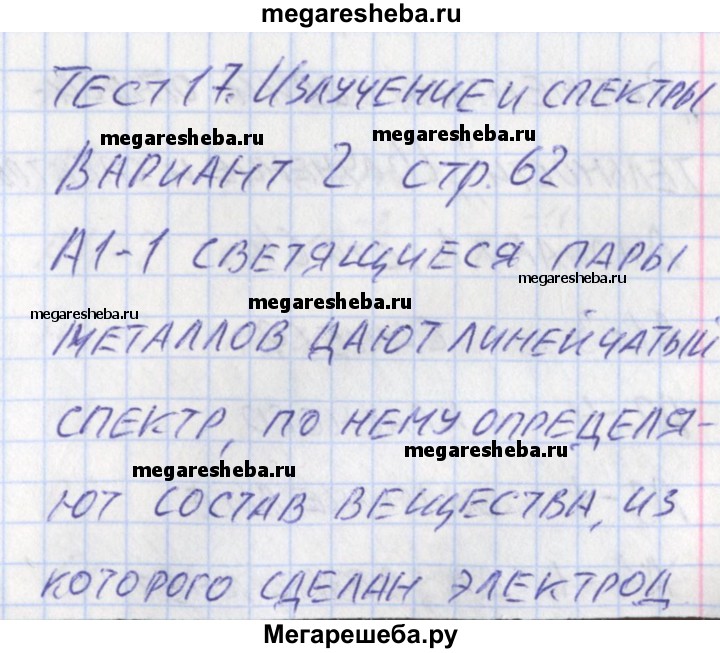 megaresheba.ru
ТЕСТ 17. ИЗЛУЧЕНИЕ И СПЕКТРЫ
megaresheba.ru
megaresheba.ru
ВАРИАНТ 2 СТР. 62
А1-1 СВЕТЯЩИЕСЯ ПАРЫ
megaresheba.ru
megaresheba.ru
megaresheba.ru
МЕТАЛЛОВ ДАЮТ ЛИНЕЙЧАТЫЙ
СПЕКТР, ПО НЕМУ ОПРЕДЕЛЯ-
megaresheba.ru
megaresheba.ru
ЮТ СОСТАВ ВЕЩЕСТВА, ИЗ
КОТОРОГО СДЕЛАН ЭЛЕКТРОД
Мегарешеба.ру